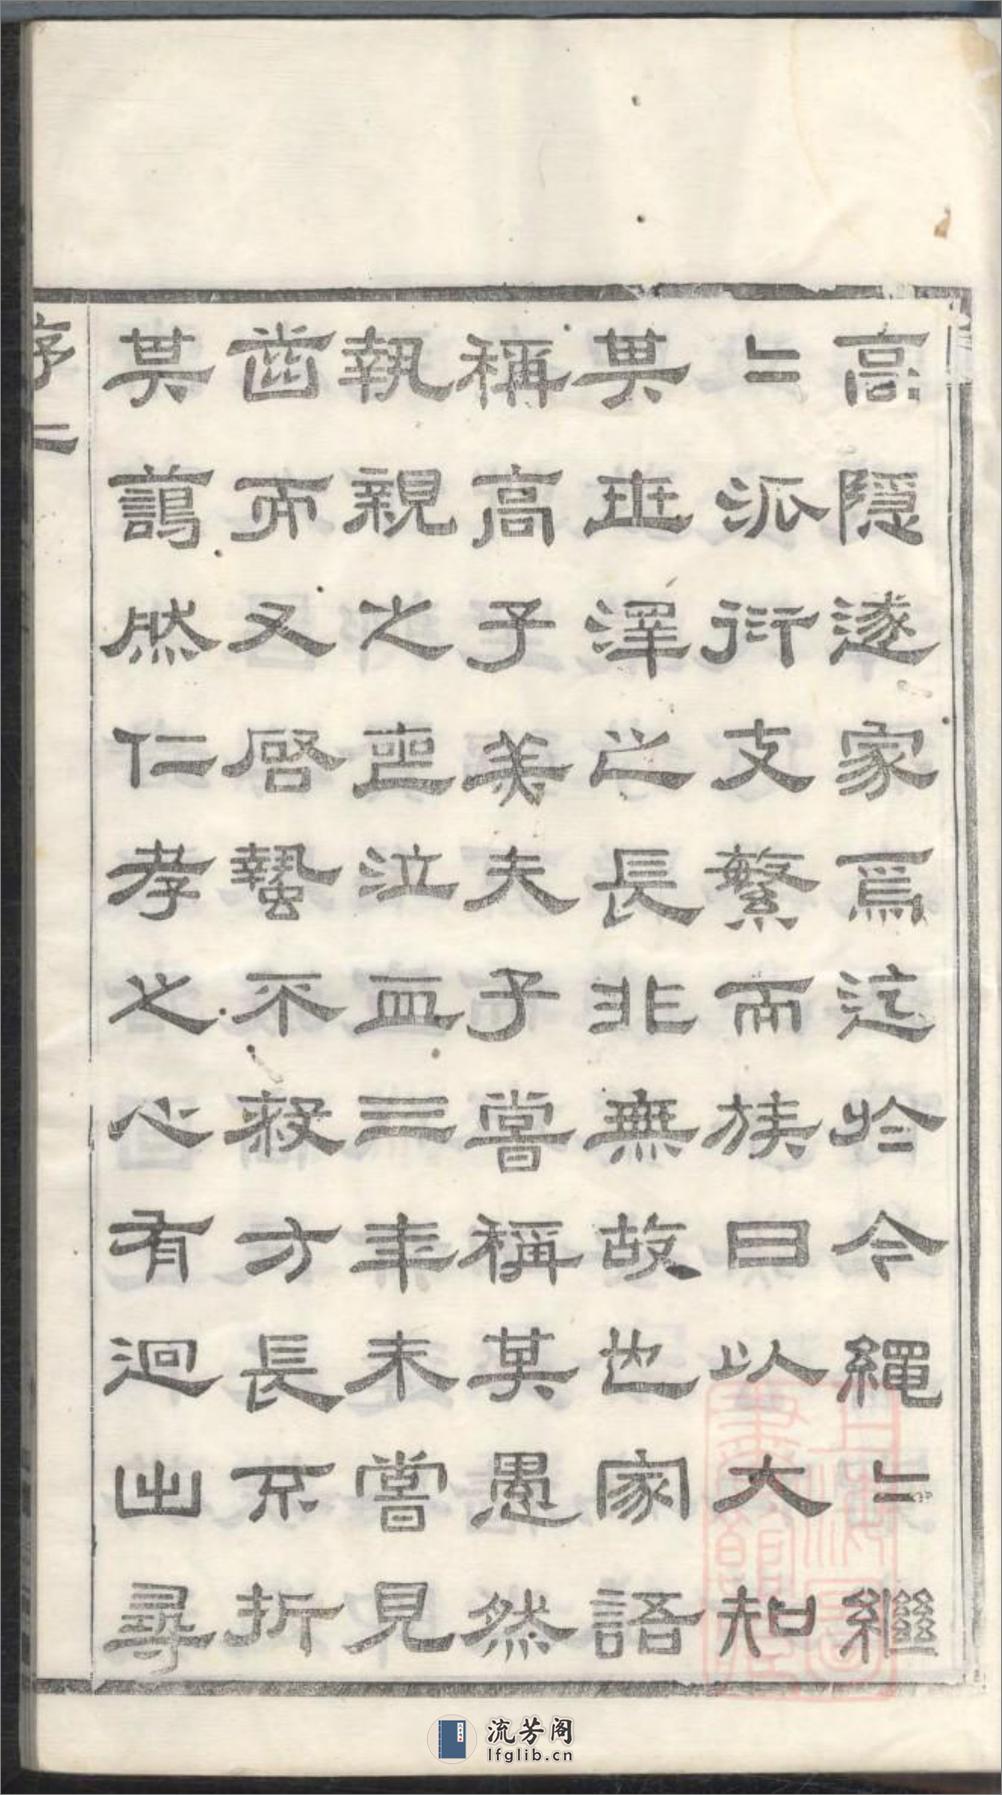 高隱遂家焉迄於今繩〻繼
〻派衍支繁而族日以大知
其世澤之長非無故也家語
稱高子羔夫子嘗稱其愚然
執親之喪泣血三年未嘗見
齒而又啓蟄不殺方長不折
其藹然仁孝之心有迥出尋
序二
流芳阁
lfglib.cn